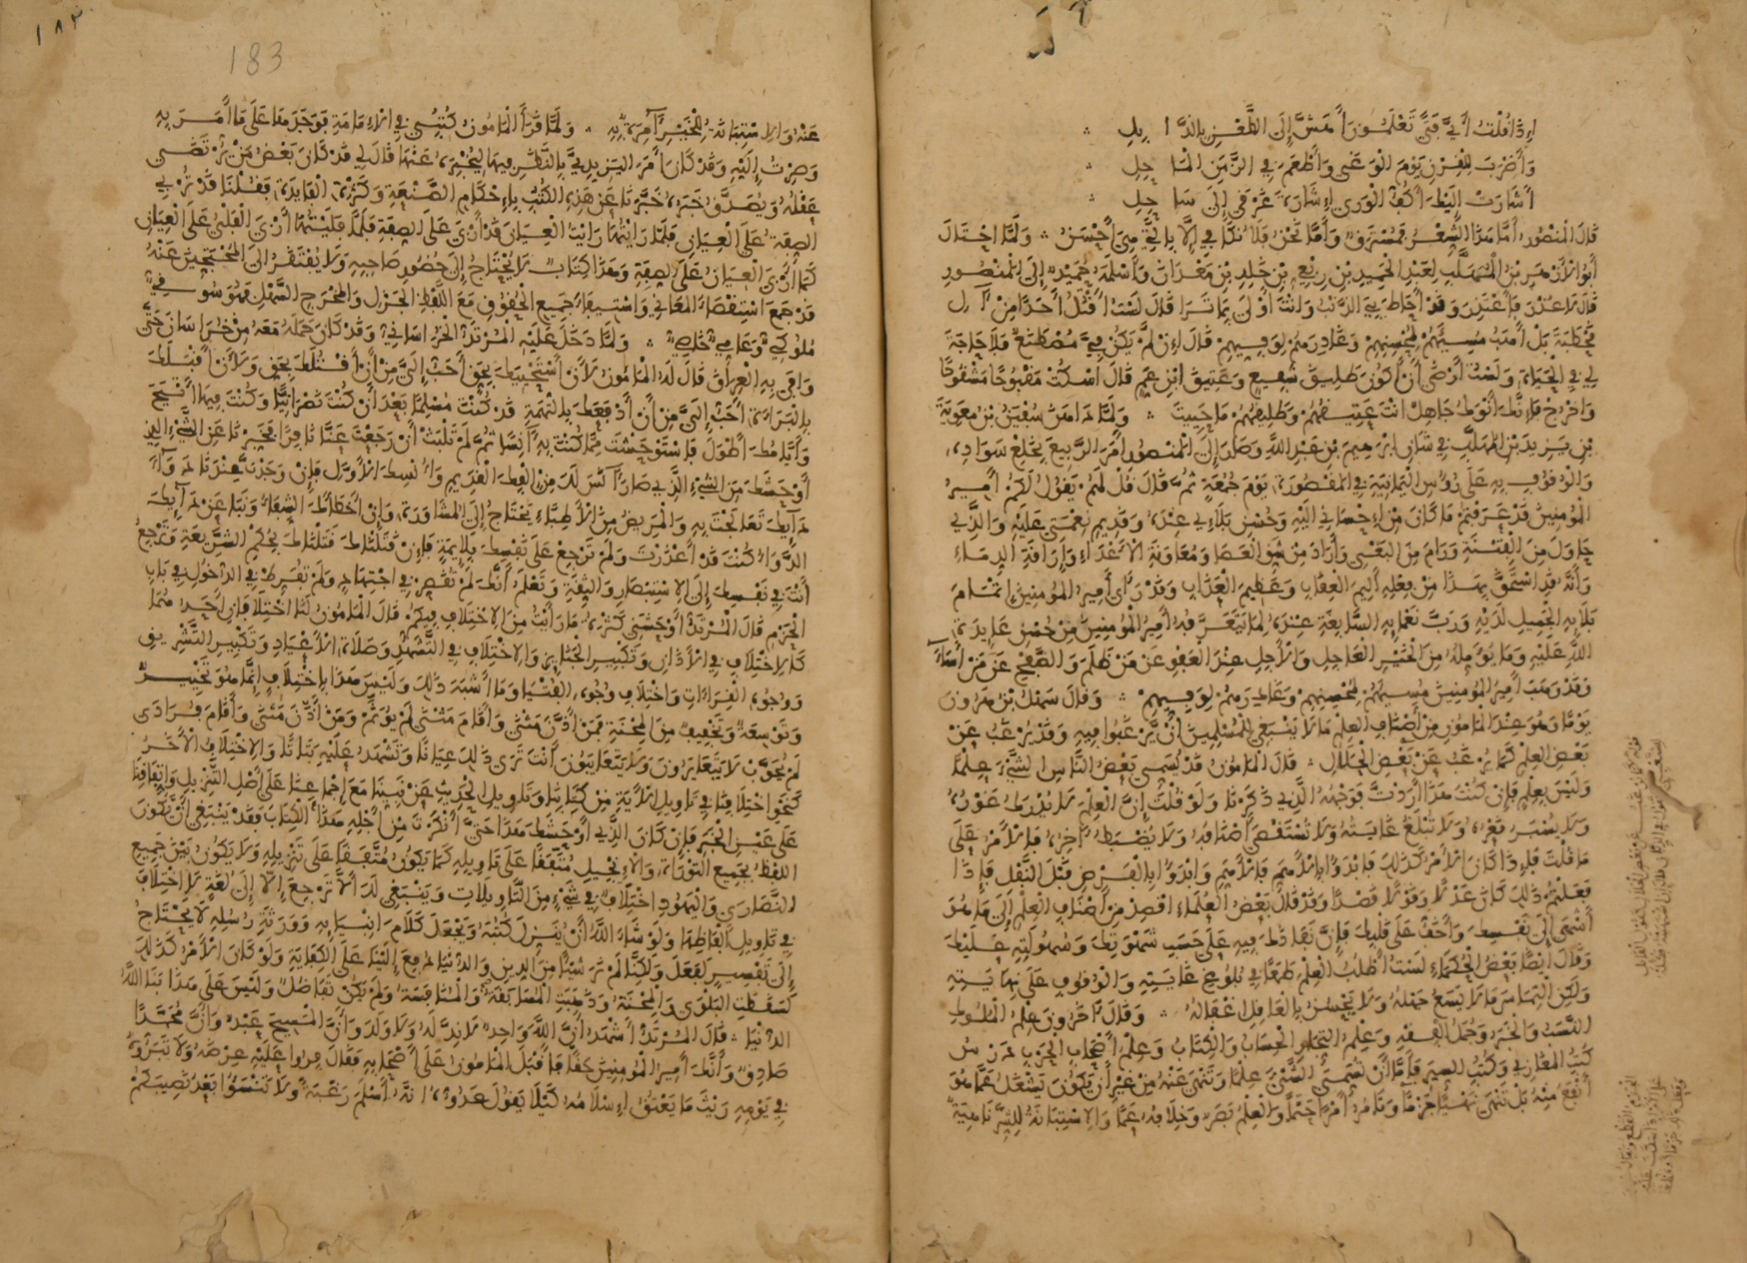 إِذَا قُلْتُ أَيُّ فَتًى تَعْلَمُونَ أَهَشَّ إِلَى الطَّعْنِ بِالذَّابِلِ
وَأَضْرَبَ لِلْقِرْنِ يَوْمَ الْوَغَى وَأَطْعَمَ فِي الزَّمَنِ الْمَاحِلِ
أَشَارَتْ إِلَيْكَ أَكُفُّ الْوَرَى إِشَارَةَ غَرْقَى إِلَى سَاحِلِ
قَالَ الْمَنْصُورُ أَمَّا هَذَا الشِّعْرُ فَمُسْتَرَقٌ وَأَمَّا نَحْنُ فَلَا نُكَافِي إِلَّا بِالَّتِي هِيَ أَحْسَنُ وَلَمَّا احْتَالَ
أَبُو الْأَزْهَرِ بْنُ الْمُهَلَّبِ لِعَبْدِ الْحَمِيدِ بْنِ رِبْعِيِّ بْنِ خَالِدِ بْنِ مَعْدَانَ وَأَسْلَمَهُ حُمَيْدٌ إِلَى الْمَنْصُورِ
قَالَ لَا عُذْرَ فَأَعْتَذِرَ وَقَدْ أَحَاطَ بِيَ الذَّنْبُ وَأَنْتَ أَوْلَى بِمَا تَرَى قَالَ لَسْتُ أَقْتُلُ أَحَدًا مِنْ آلِ
قَحْطَبَةَ بَلْ أَهَبُ مُسِيئَهُمْ لِمُحْسِنِهِمْ وَغَادِرَهُمْ لِوَفِيِّهِمْ قَالَ إِنْ لَمْ يَكُنْ فِيَّ مُصْطَنَعٌ فَلَا حَاجَةَ
لِي فِي الْحَيَاةِ وَلَسْتُ أَرْضَى أَنْ أَكُونَ طَلِيقَ شَفِيعٍ وَعَتِيقَ ابْنِ عَمٍّ قَالَ اسْكُتْ مَقْبُوحًا مَشْقُوحًا
وَاخْرُجْ فَإِنَّكَ أَنْوَكُ جَاهِلٌ أَنْتَ عَتِيقُهُمْ وَطَلِيقُهُمْ مَا حَيِيتَ وَلَمَّا دَاهَنَ سُفْيَنُ بْنُ مُعَوِيَةَ
بْنِ يَزِيدَ بْنِ الْمُهَلَّبِ فِي شَأْنِ إِبْرَهِيمَ بْنِ عَبْدِ اللَّهِ وَصَارَ إِلَى الْمَنْصُورِ أَمَرَ الرَّبِيعَ بِخَلْعِ سَوَادِهِ
وَالْوُقُوفِ بِهِ عَلَى رُؤُسِ الْيَمَانِيَةِ فِي الْمَقْصُورَةِ يَوْمَ جُمُعَةٍ ثُمَّ قَالَ قُلْ لَهُمْ يَقُولُ لَكُمْ أَمِيرُ
الْمُؤْمِنِينَ قَدْ عَرَفْتُمْ مَا كَانَ مِنْ إِحْسَانِي إِلَيْهِ وَحُسْنِ بَلَاءِي عِنْدَهُ وَقَدِيمِ نِعْمَتِي عَلَيْهِ وَالَّذِي
حَاوَلَ مِنَ الْفِتْنَةِ وَرَامَ مِنَ الْبَغْيِ وَأَرَادَ مِنْ شَقِّ الْعَصَا وَمُعَاوَنَةِ الْأَعْدَاءِ وَإِرَاقَةِ الدِّمَاءِ
وَأَنَّهُ قَدِ اسْتَحَقَّ بِهَذَا مِنْ فِعْلِهِ أَلِيمَ الْعِقَابِ وَعَظِيمَ الْعَذَابِ وَقَدْ رَأَى أَمِيرُ الْمُؤْمِنِينَ إِتْمَامَ
بَلَائِهِ الْجَمِيلِ لَدَيْهِ وَرَبَّ نَعْمَائِهِ السَّابِغَةِ عِنْدَهُ لِمَا يَتَعَرَّفُهُ أَمِيرُ الْمُؤْمِنِينَ مِنْ حُسْنِ عَايِدَةِ
اللَّهِ عَلَيْهِ وَمَا يُؤَمِّلُهُ مِنَ الْخَيْرِ الْعَاجِلِ وَالْآجِلِ عِنْدَ الْعَفْوِ عَنْ مَنْ ظَلَمَ وَالصَّفْحِ عَنْ مَنْ أَسَاءَ
وَقَدْ وَهَبَ أَمِيرُ الْمُؤْمِنِينَ مُسِيئَهُمْ لِمُحْسِنِهِمْ وَغَادِرَهُمْ لِوَفِيِّهِمْ وَقَالَ سَهْلُ بْنُ هَرُونَ
يَوْمًا وَهُوَ عِنْدَ الْمَامُونِ مِنْ أَصْنَافِ الْعِلْمِ مَا لَا يَنْبَغِي لِلْمُسْلِمِينَ أَنْ يَرْغَبُوا فِيهِ وَقَدْ يُرْغَبُ عَنْ
بَعْضِ الْعِلْمِ كَمَا يُرْغَبُ عَنْ بَعْضِ الْحَلَالِ قَالَ الْمَامُونُ قَدْ يُسَمِّي بَعْضُ النَّاسِ الشَّيْءَ عِلْمًا
وَلَيْسَ بِعِلْمٍ فَإِنْ كُنْتَ هَذَا أَرَدْتَ فَوَجْهُهُ الَّذِي ذَكَرْنَا وَلَوْ قُلْتَ إِنَّ الْعِلْمَ لَا يُدْرَكُ غَوْرُهُ
وَلَا يُسْبَرُ قَعْرُهُ وَلَا تُبْلَغُ غَايَتُهُ وَلَا تُسْتَقْصَى أَصْنَافُهُ وَلَا يُضْبَطُ آخِرُهُ فَالْأَمْرُ عَلَى
مَا قُلْتَ فَإِذَا كَانَ الْأَمْرُ كَذَلِكَ فَابْدَؤُا بِالْأَهَمِّ فَالْأَهَمِّ وَابْدَؤُا بِالْفَرْضِ قَبْلَ النَّفْلِ فَإِذَا
فَعَلْتُمْ ذَلِكَ كَانَ عَدْلًا وَقَوْلًا قَصْدًا وَقَدْ قَالَ بَعْضُ الْعُلَمَاءِ اقْصِدْ مِنْ أَصْنَافِ الْعِلْمِ إِلَى مَا هُوَ
أَشْهَى إِلَى نَفْسِكَ وَأَخَفُّ عَلَى قَلْبِكَ فَإِنَّ نَفَاذَكَ فِيهِ عَلَى حَسَبِ شَهْوَتِكَ وَسُهُولَتِهِ عَلَيْكَ
وَقَالَ أَيْضًا بَعْضُ الْحُكَمَاءِ لَسْتُ أَطْلُبُ الْعِلْمَ طَمَعًا فِي بُلُوغِ غَايَتِهِ وَالْوُقُوفِ عَلَى نِهَايَتِهِ
وَلَكِنِ الْتِمَاسَ مَا لَا يَسَعُ جَهْلُهُ وَلَا يَحْسُنُ بِالْعَاقِلِ إِغْفَالُهُ وَقَالَ آخَرُونَ عِلْمُ الْمُلُوكِ
النَّسَبُ وَالْخَبَرُ وَجُمَلُ الْفِقْهِ وَعِلْمُ التُّجَّارِ الْحِسَابُ وَالْكِتَابُ وَعِلْمُ أَصْحَابِ الْحَرْبِ دَرْسُ
كُتُبِ الْمَغَازِي وَكُتُبِ السِّيَرِ فَأَمَّا أَنْ تُسَمِّيَ الشَّيْءَ عِلْمًا وَتَنْهَى عَنْهُ مِنْ غَيْرِ أَنْ يَكُونَ يَشْغَلُ عَمَّا هُوَ
أَنْفَعُ مِنْهُ بَلْ تَنْهَى نَهْيًا جَزْمًا وَتَامُرُ أَمْرًا حَتْمًا وَالْعِلْمُ بَصَرٌ وَخِلَافُهُ عَمًى وَالِاسْتِبَانَةُ لِلشَّرِّ نَاهِيَةٌ
١٨٣
183
عَنْهُ وَالِاسْتِبَانَةُ لِلْخَيْرِ آمِرَةٌ بِهِ وَلَمَّا قَرَأَ الْمَامُونُ كُتُبِي فِي الْإِمَامَةِ فَوَجَدَهَا عَلَى مَا أَمَرَ بِهِ
وَصِرْتُ إِلَيْهِ وَقَدْ كَانَ أَمَرَ الْيَزِيدِيَّ بِالنَّظَرِ فِيهَا لِيُخْبِرَهُ عَنْهَا قَالَ لِي قَدْ كَانَ بَعْضُ مَنْ يُرْتَضَى
عَقْلُهُ وَيُصَدَّقُ خَبَرُهُ خَبَّرَنَا عَنْ هَذِهِ الْكُتُبِ بِإِحْكَامِ الصَّنْعَةِ وَكَثْرَةِ الْفَايِدَةِ فَقُلْنَا قَدْ تُرْبِي
الصِّفَةُ عَلَى الْعِيَانِ فَلَمَّا رَأَيْتُهَا رَأَيْتُ الْعِيَانَ قَدْ أَرْبَى عَلَى الصِّفَةِ فَلَمَّا فَلَيْتُهَا أَرْبَى الْفَلْيُ عَلَى الْعِيَانِ
كَمَا أَرْبَى الْعِيَانُ عَلَى الصِّفَةِ وَهَذَا كِتَابٌ لَا يَحْتَاجُ إِلَى حُضُورِ صَاحِبِهِ وَلَا يَفْتَقِرُ إِلَى الْمُحْتَجِّينَ عَنْهُ
قَدْ جَمَعَ اسْتِقْصَاءَ الْمَعَانِي وَاسْتِيفَاءَ جَمِيعِ الْحُقُوقِ مَعَ اللَّفْظِ الْجَزْلِ وَالْمَخْرَجِ السَّهْلِ فَهُوَ سُوقِيٌّ
مُلُوكِيٌّ وَعَامِيٌّ خَاصِيٌّ وَلَمَّا دَخَلَ عَلَيْهِ الْمُرْتَدُّ الْخُرَاسَانِيُّ وَقَدْ كَانَ حَمَلَهُ مَعَهُ مِنْ خُرَاسَانَ حَتَّى
وَافَى بِهِ الْعِرَاقَ قَالَ لَهُ الْمَامُونُ لَأَنْ أَسْتَحْيِيَكَ بِحَقٍّ أَحَبُّ إِلَيَّ مِنْ أَنْ أَقْتُلَكَ بِحَقٍّ وَلَأَنْ أَقْبَلَكَ
بِالْبَرَاءَةِ أَحَبُّ إِلَيَّ مِنْ أَنْ أَدْفَعَكَ بِالتُّهَمَةِ قَدْ كُنْتَ مُسْلِمًا بَعْدَ أَنْ كُنْتَ نَصْرَانِيًّا وَكُنْتَ فِيهَا أَتْيَحَ
وَأَيَّامُكَ أَطْوَلَ فَاسْتَوْحَشْتَ مِمَّا كُنْتَ بِهِ آنِسًا ثُمَّ لَمْ تَلْبَثْ أَنْ رَجَعْتَ عَنَّا نَافِرًا فَخَبِّرْنَا عَنِ الشَّيْءِ الَّذِي
أَوْحَشَكَ مِنَ الشَّيْءِ الَّذِي صَارَ آنَسَ لَكَ مِنْ إِلْفِكَ الْقَدِيمِ وَأُنْسِكَ الْأَوَّلِ فَإِنْ وَجَدْتَ عِنْدَنَا دَوَاءَ
دَائِكَ تَعَالَجْتَ بِهِ وَالْمَرِيضُ مِنَ الْأَطِبَّاءِ يَحْتَاجُ إِلَى الْمُشَاوَرَةِ وَإِنْ أَخْطَأَكَ الشِّفَاءُ وَنَبَا عَنْ دَائِكَ
الدَّوَاءُ كُنْتَ قَدْ أَعْذَرْتَ وَلَمْ تَرْجِعْ عَلَى نَفْسِكَ بِلَائِمَةٍ فَإِنْ قَتَلْنَاكَ قَتَلْنَاكَ بِحُكْمِ الشَّرِيعَةِ وَتَرْجِعُ
أَنْتَ فِي نَفْسِكَ إِلَى الِاسْتِبْصَارِ وَالثِّقَةِ وَتَعْلَمُ أَنَّكَ لَمْ تُقَصِّرْ فِي اجْتِهَادٍ وَلَمْ تُفَرِّطْ فِي الدُّخُولِ فِي بَابِ
الْحَزْمِ قَالَ الْمُرْتَدُّ أَوْحَشَنِي كَثْرَةُ مَا رَأَيْتُ مِنَ الِاخْتِلَافِ فِيكُمْ قَالَ الْمَامُونُ لَنَا اخْتِلَافَانِ أَحَدُهُمَا
كَالِاخْتِلَافِ فِي الْأَذَانِ وَتَكْبِيرِ الْجَنَائِزِ وَالِاخْتِلَافِ فِي التَّشَهُّدِ وَصَلَاةِ الْأَعْيَادِ وَتَكْبِيرِ التَّشْرِيقِ
وَوُجُوهِ الْقِرَاءَاتِ وَاخْتِلَافِ وُجُوهِ الْفُتْيَا وَمَا أَشْبَهَ ذَلِكَ وَلَيْسَ هَذَا بِاخْتِلَافٍ إِنَّمَا هُوَ تَخْيِيرٌ
وَتَوْسِعَةٌ وَتَخْفِيفٌ مِنَ الْمِحْنَةِ فَمَنْ أَذَّنَ مَثْنَى وَأَقَامَ مَثْنَى لَمْ يُؤَثَّمْ وَمَنْ أَذَّنَ مَثْنَى وَأَقَامَ فُرَادَى
لَمْ يُحَوَّبْ لَا يَتَعَايَرُونَ وَلَا يَتَعَايَبُونَ أَنْتَ تَرَى ذَلِكَ عِيَانًا وَتَشْهَدُ عَلَيْهِ بَتَاتًا وَالِاخْتِلَافُ الْآخَرُ
كَنَحْوِ اخْتِلَافِنَا فِي تَاوِيلِ الْآيَةِ مِنْ كِتَابِنَا وَتَاوِيلِ الْحَدِيثِ عَنْ نَبِيِّنَا مَعَ إِجْمَاعِنَا عَلَى أَصْلِ التَّنْزِيلِ وَاتِّفَاقِنَا
عَلَى عَيْنِ الْخَبَرِ فَإِنْ كَانَ الَّذِي أَوْحَشَكَ هَذَا حَتَّى أَنْكَرْتَ مِنْ أَجْلِهِ هَذَا الْكِتَابَ فَقَدْ يَنْبَغِي أَنْ يَكُونَ
اللَّفْظُ بِجَمِيعِ التَّوْرَاةِ وَالْإِنْجِيلِ مُتَّفَقًا عَلَى تَاوِيلِهِ كَمَا يَكُونُ مُتَّفَقًا عَلَى تَنْزِيلِهِ وَلَا يَكُونُ بَيْنَ جَمِيعِ
النَّصَارَى وَالْيَهُودِ اخْتِلَافٌ فِي شَيْءٍ مِنَ التَّاوِيلَاتِ وَيَنْبَغِي لَكَ أَلَّا تَرْجِعَ إِلَّا إِلَى لُغَةٍ لَا اخْتِلَافَ
فِي تَاوِيلِ أَلْفَاظِهَا وَلَوْ شَاءَ اللَّهُ أَنْ يُنْزِلَ كُتُبَهُ وَيَجْعَلَ كَلَامَ أَنْبِيَائِهِ وَوَرَثَةِ رُسُلِهِ لَا يَحْتَاجُ
إِلَى تَفْسِيرٍ لَفَعَلَ وَلَكِنَّا لَمْ نَرَ شَيْئًا مِنَ الدِّينِ وَالدُّنْيَا دُفِعَ إِلَيْنَا عَلَى الْكِفَايَةِ وَلَوْ كَانَ الْأَمْرُ كَذَلِكَ
لَسَقَطَتِ الْبَلْوَى وَالْمِحْنَةُ وَذَهَبَتِ الْمُسَابَقَةُ وَالْمُنَافَسَةُ وَلَمْ يَكُنْ تَفَاضُلٌ وَلَيْسَ عَلَى هَذَا بَنَا اللَّهُ
الدُّنْيَا قَالَ الْمُرْتَدُّ أَشْهَدُ أَنَّ اللَّهَ وَاحِدٌ لَا نِدَّ لَهُ وَلَا وَلَدَ وَأَنَّ الْمَسِيحَ عَبْدٌ وَأَنَّ مُحَمَّدًا
صَادِقٌ وَأَنَّكَ أَمِيرُ الْمُؤْمِنِينَ حَقًّا فَأَقْبَلَ الْمَامُونُ عَلَى أَصْحَابِهِ فَقَالَ فِرُوا عَلَيْهِ عِرْضَهُ وَلَا تَبَرُّوهُ
فِي يَوْمِهِ رَيْثَ مَا يَعْتُقُ إِسْلَامُهُ كَيْلَا يَقُولَ عَدُوُّهُ إِنَّهُ أَسْلَمَ رَغْبَةً وَلَا تَنْسَوْا بَعْدُ نَصِيبَكُمْ